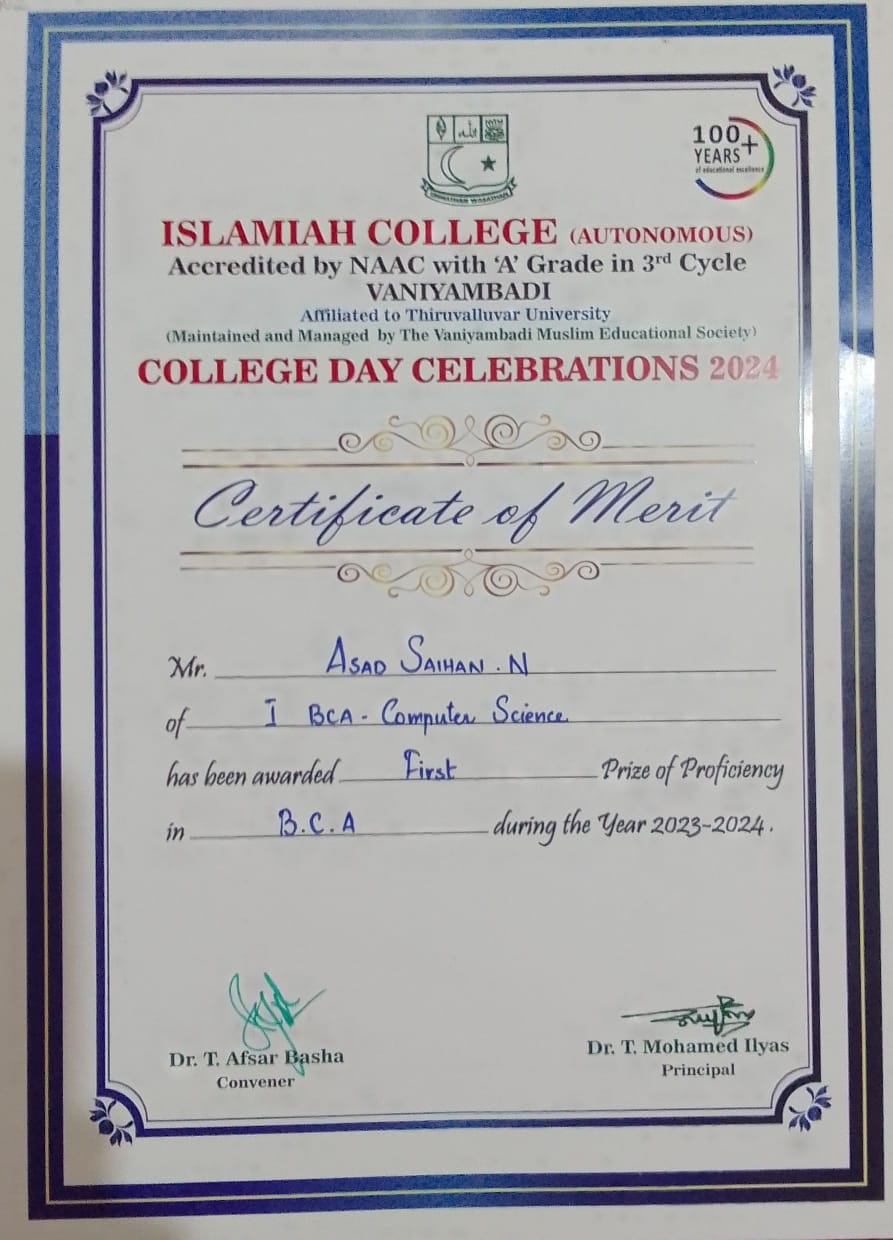 100+
YEARS
of educational excellence
ISLAMIAH COLLEGE (AUTONOMOUS)
Accredited by NAAC with ‘A’ Grade in 3rd Cycle
VANIYAMBADI
Affiliated to Thiruvalluvar University
(Maintained and Managed by The Vaniyambadi Muslim Educational Society)
COLLEGE DAY CELEBRATIONS 2024
Certificate of Merit
Mr. ASAD SAIHAN . N
of I BCA - Computer Science
has been awarded First Prize of Proficiency
in B.C.A during the Year 2023-2024.
Dr. T. Afsar Basha
Convener
Dr. T. Mohamed Ilyas
Principal